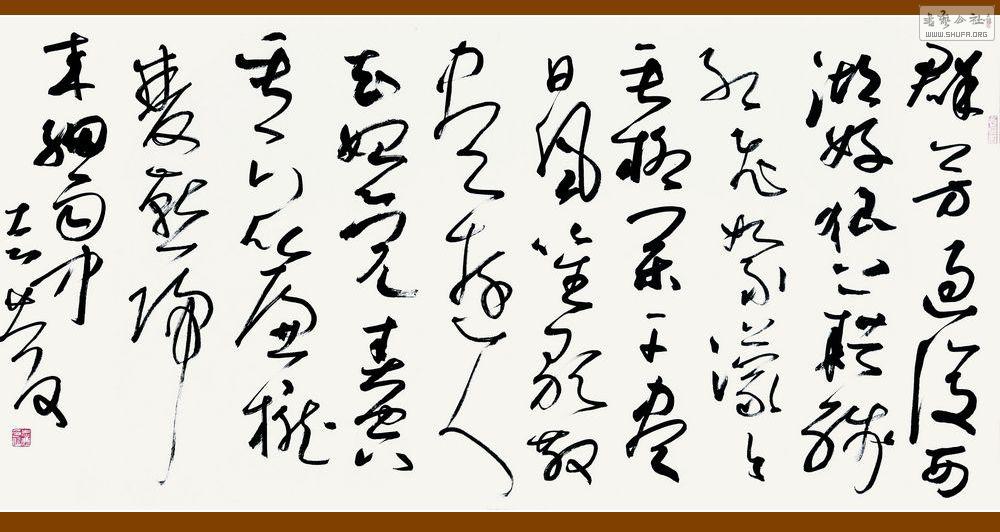 書藝公社
WWW.SHUFA.ORG
群芳過後西
湖好狼藉殘
紅飛絮濛々
垂柳闌干盡
日風笙歌散
盡遊人
去始覺春空
垂下簾櫳
雙燕歸
來細雨中